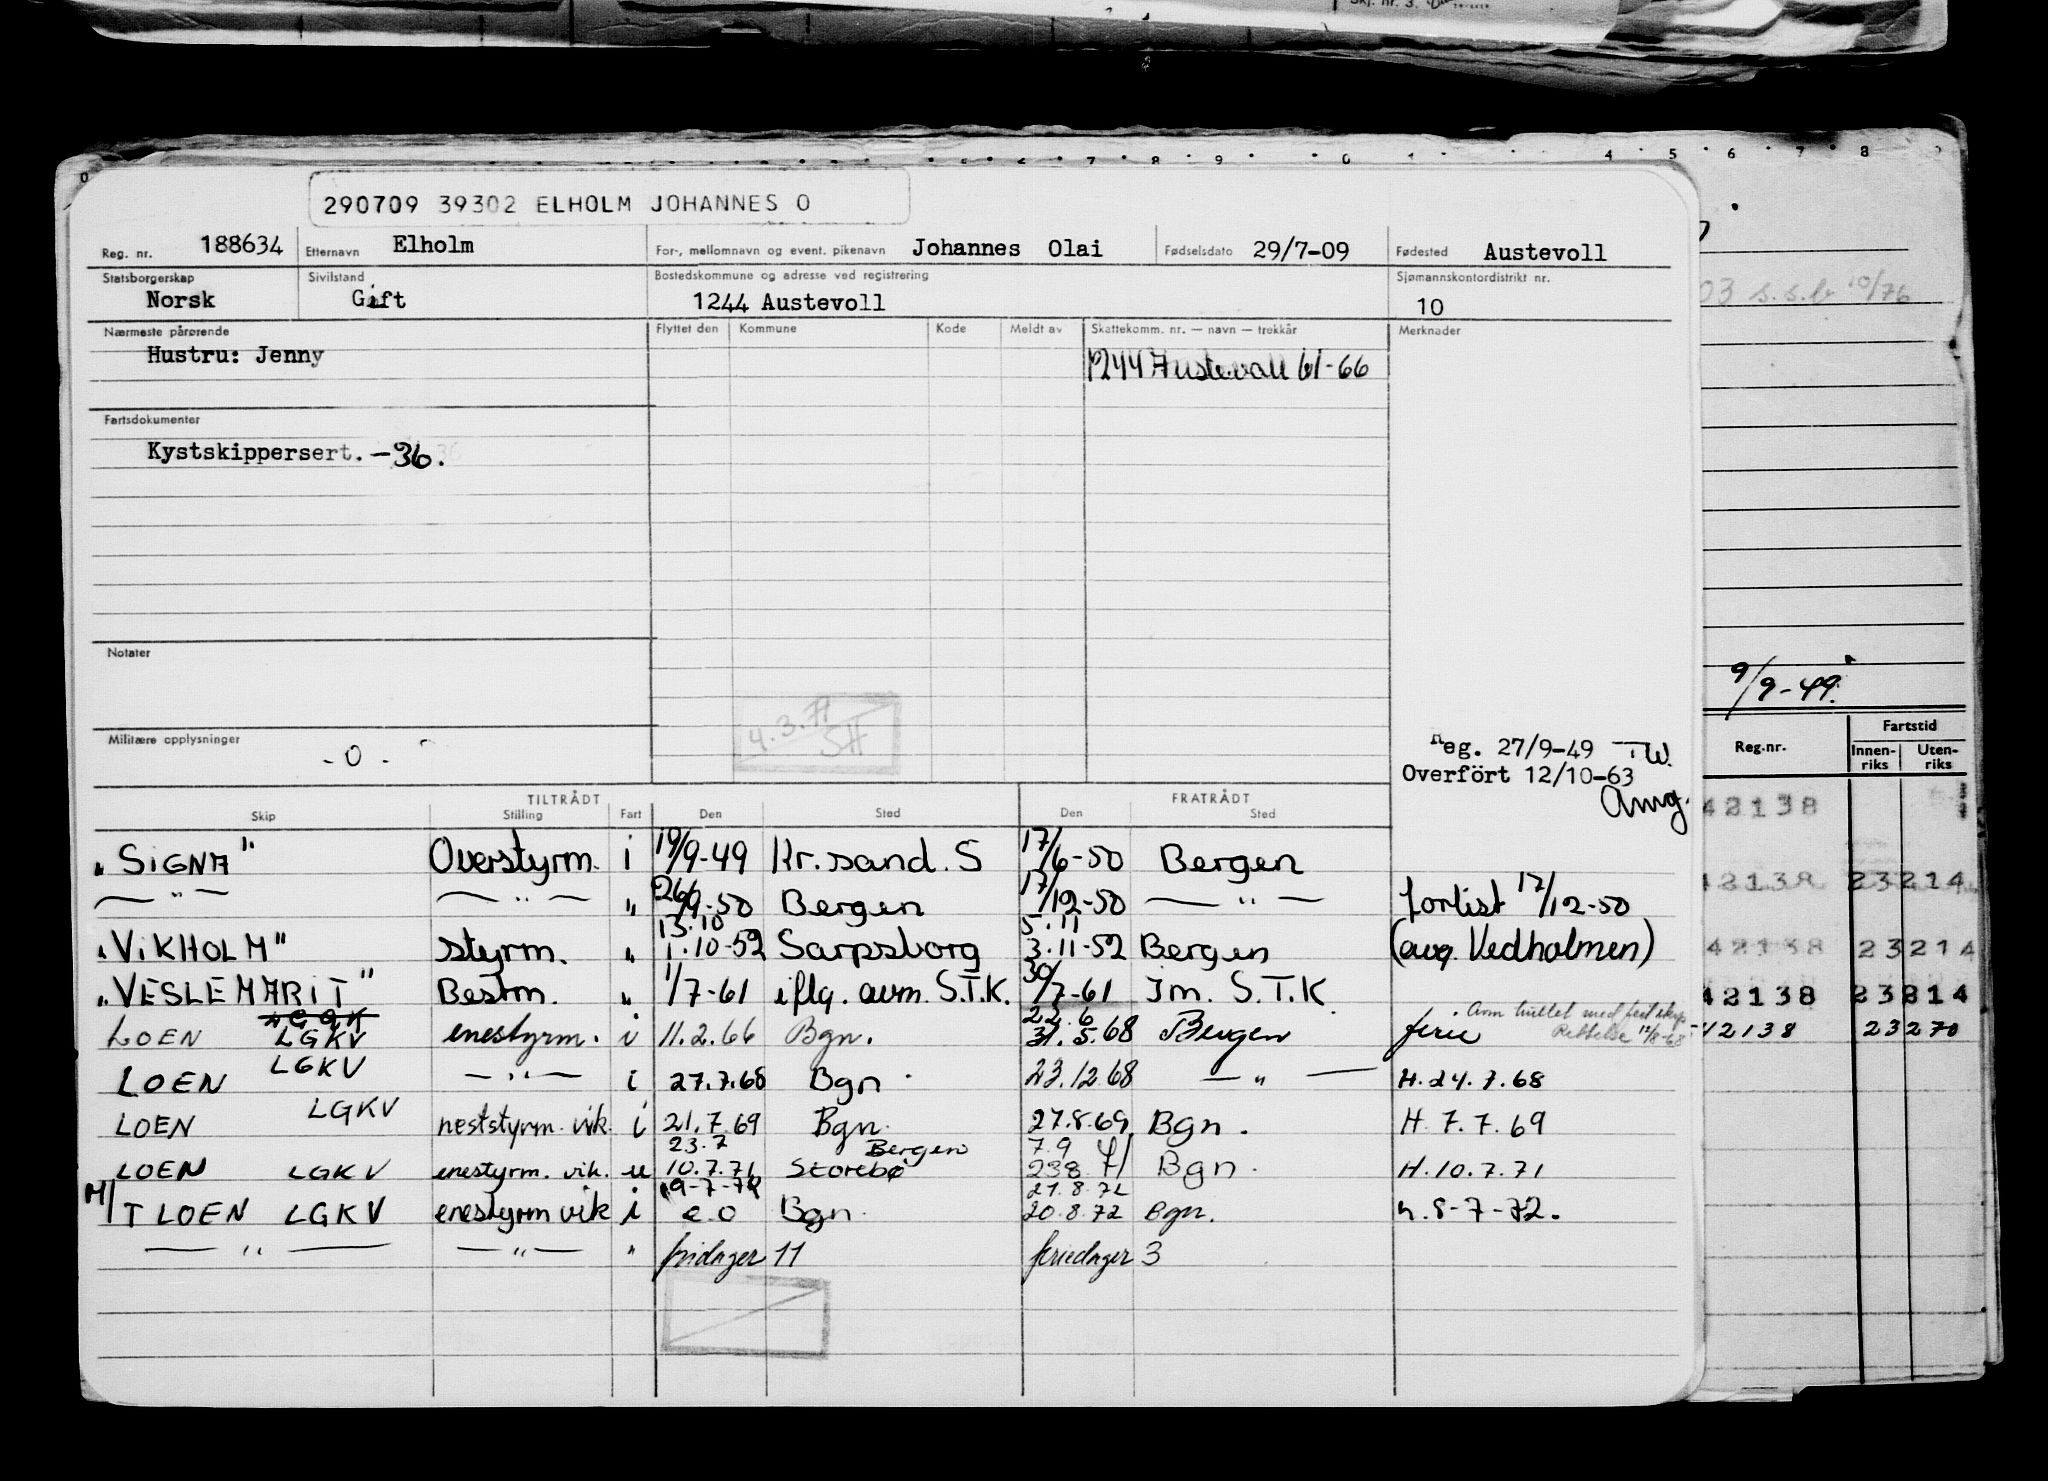 290709 39302 ELHOLM JOHANNES O
Reg. nr. 188634 Etternavn Elholm For-, mellomnavn og event. pikenavn Johannes Olai Fødselsdato 29/7-09 Fødested Austevoll
Statsborgerskap Sivilstand Bostedskommune og adresse ved registrering Sjømannskontordistrikt nr.
Norsk Gift 1244 Austevoll 10
Nærmeste pårørende Flyttet den Kommune Kode Meldt av Skattekomm. nr. — navn — trekkår Merknader
Hustru: Jenny 1244 Austevoll 61-66
Fartsdokumenter
Kystskippersert. -36.
Notater
4.3.71
SH
Militære opplysninger
- 0 -
Reg. 27/9-49 TW.
Overfört 12/10-63
Amg.
TILTRÅDT FRATRÅDT
Skip Stilling Fart Den Sted Den Sted
"SIGNA" Overstyrm. i 19/9-49 Kr.sand. S 17/6-50 Bergen
— " — — " — " 26/9-50 Bergen 17/12-50 — " — forlist 17/12-50
13.10 5.11
"VIKHOLM" styrm. " 1.10-52 Sarpsborg 3.11-52 Bergen (avg. Vedholmen)
"VESLEMARIT" Bestm. " 1/7-61 iflg. avm. S.T.K. 30/7-61 Im. S.T.K
22.6
LOEN LGKV enestyrm. i 11.2.66 Bgn. 31.5.68 Bergen ferie Rettelse 12/8-68
LOEN LGKV — " — i 27.7.68 Bgn. 23.12.68 — " — H.24.7.68
LOEN LGKV neststyrm. vik. i 21.7.69 Bgn. 27.8.69 Bgn. H.7.7.69
23.7 Bergen 7.9
LOEN LGKV enestyrm. vik. u 10.7.71 Storebø 23.8.71 Bgn. H.10.7.71
19-7-72 21.8.72
M/T LOEN LGKV enestyrm vik i e.o Bgn. 20.8.72 Bgn. h.8-7-72.
— " — — " — " fridager 11 feriedager 3
03 s.s.b 10/76
9/9-49.
Fartstid
Reg.nr. Innenriks Utenriks
42138
42138 23214
42138 23214
42138 23214
42138 23270